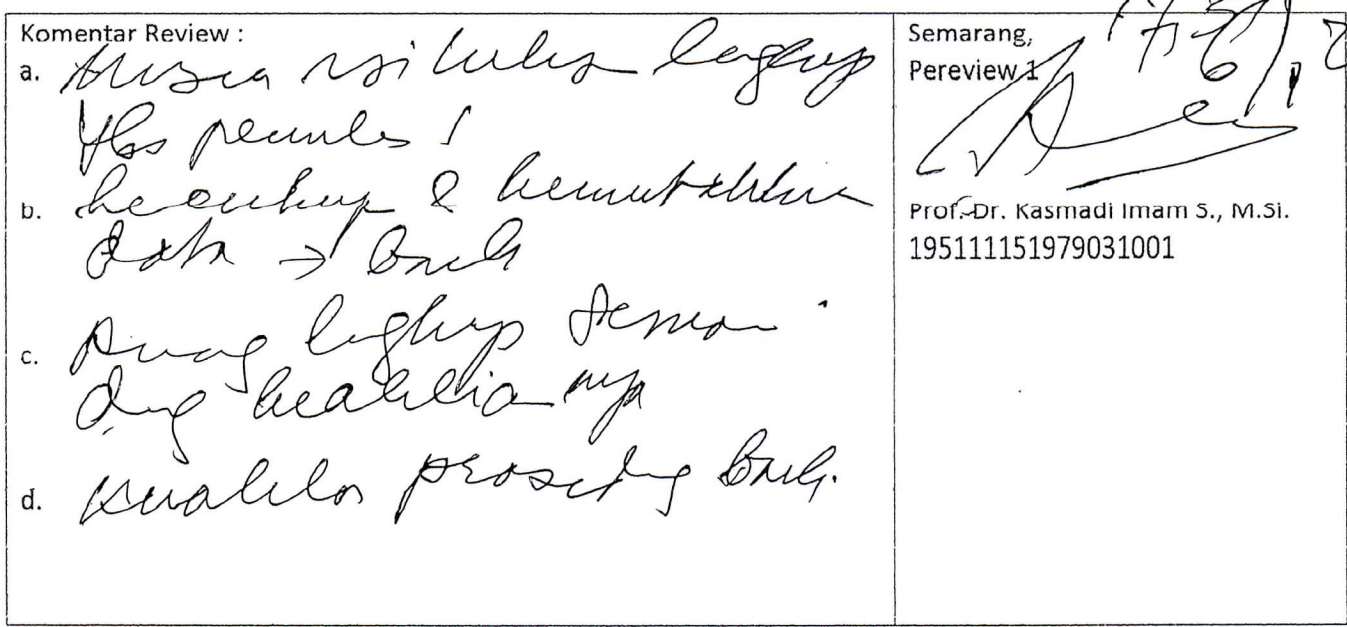 Komentar Review :
a. unsur isi tulis lengkap
Ybs penulis 1
b. kecukup & kemutakhira
data → baik
c. Ruang lingkup sesuai
dng keahlian nya
d. kualitas prosiding baik.
Semarang,
Pereview 1
Prof. Dr. Kasmadi Imam S., M.Si.
195111151979031001